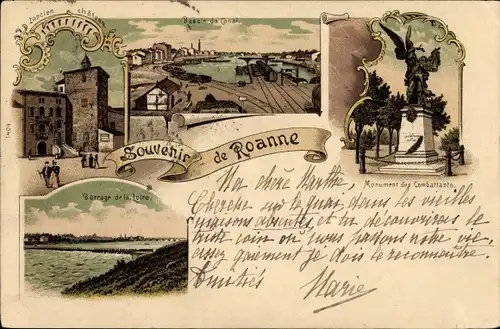 L'ancien château
Bassin du Canal.
Souvenir de Roanne
Monument des Combattants.
Barrage de la Loire.
Ma chère Marthe,
Cherche sur le quai, dans les vieilles
maisons absentes, et tu découvriras le
petit coin où nous passons notre vie,
assez gaiement je dois le reconnaître.
Amitiés
Marie